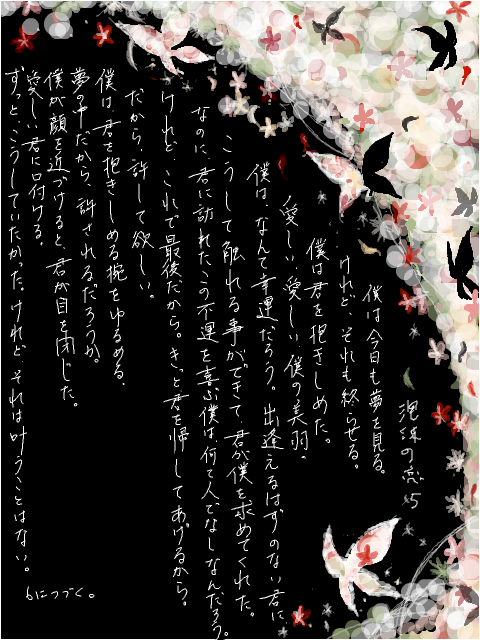 泡沫の恋 5
僕は今日も夢を見る。
けれど、それも終らせる。
僕は君を抱きしめた。
愛しい、愛しい、僕の美羽。
僕は、なんて幸運だろう。出逢えるはずのない君に
こうして触れる事ができて、君が僕を求めてくれた。
なのに、君に訪れたこの不運を喜ぶ僕は何て人でなしなんだろう。
けれど、これで最後だから。きっと君を帰してあげるから。
だから、許して欲しい。
僕は君を抱きしめる腕をゆるめる。
夢の中だから、許されるだろうか。
僕が顔を近づけると、君が目を閉じた。
愛しい君に口付ける。
ずっと、こうしていたかった。けれど、それは叶うことはない。
6につづく。